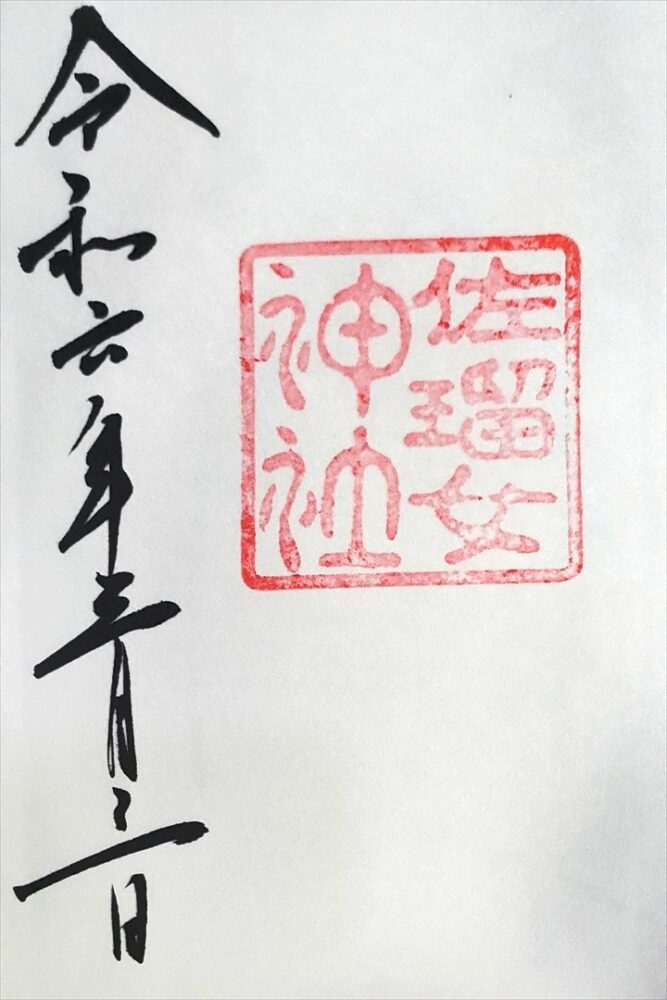 佐瑠女
神社
令和六年三月三日